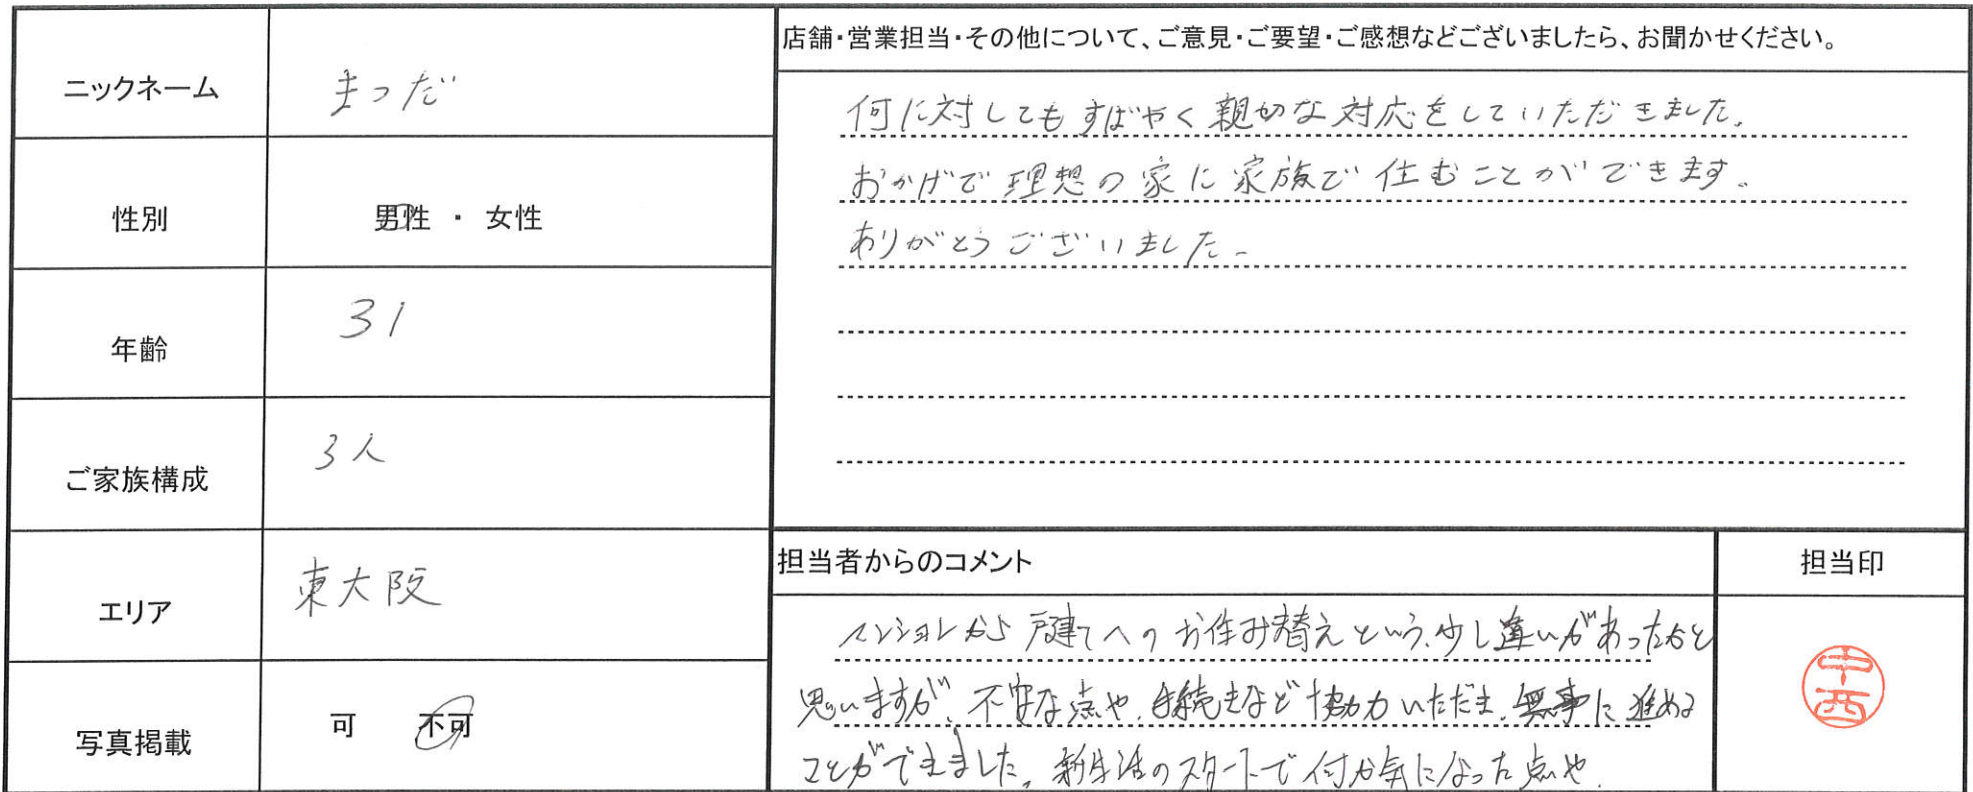 ニックネーム
まつだ
性別
男性 ・ 女性
年齢
31
ご家族構成
3人
エリア
東大阪
写真掲載
可 不可
店舗・営業担当・その他について、ご意見・ご要望・ご感想などございましたら、お聞かせください。
何に対してもすばやく親切な対応をしていただきました。
おかげで理想の家に家族で住むことができます。
ありがとうございました。
担当者からのコメント
マンションから戸建てへのお住み替えという、少し違いがあったかと
思いますが、不安な点や、手続きなど協力いただき、無事に進める
ことができました。新生活のスタートで何か気になった点や、
担当印
中西